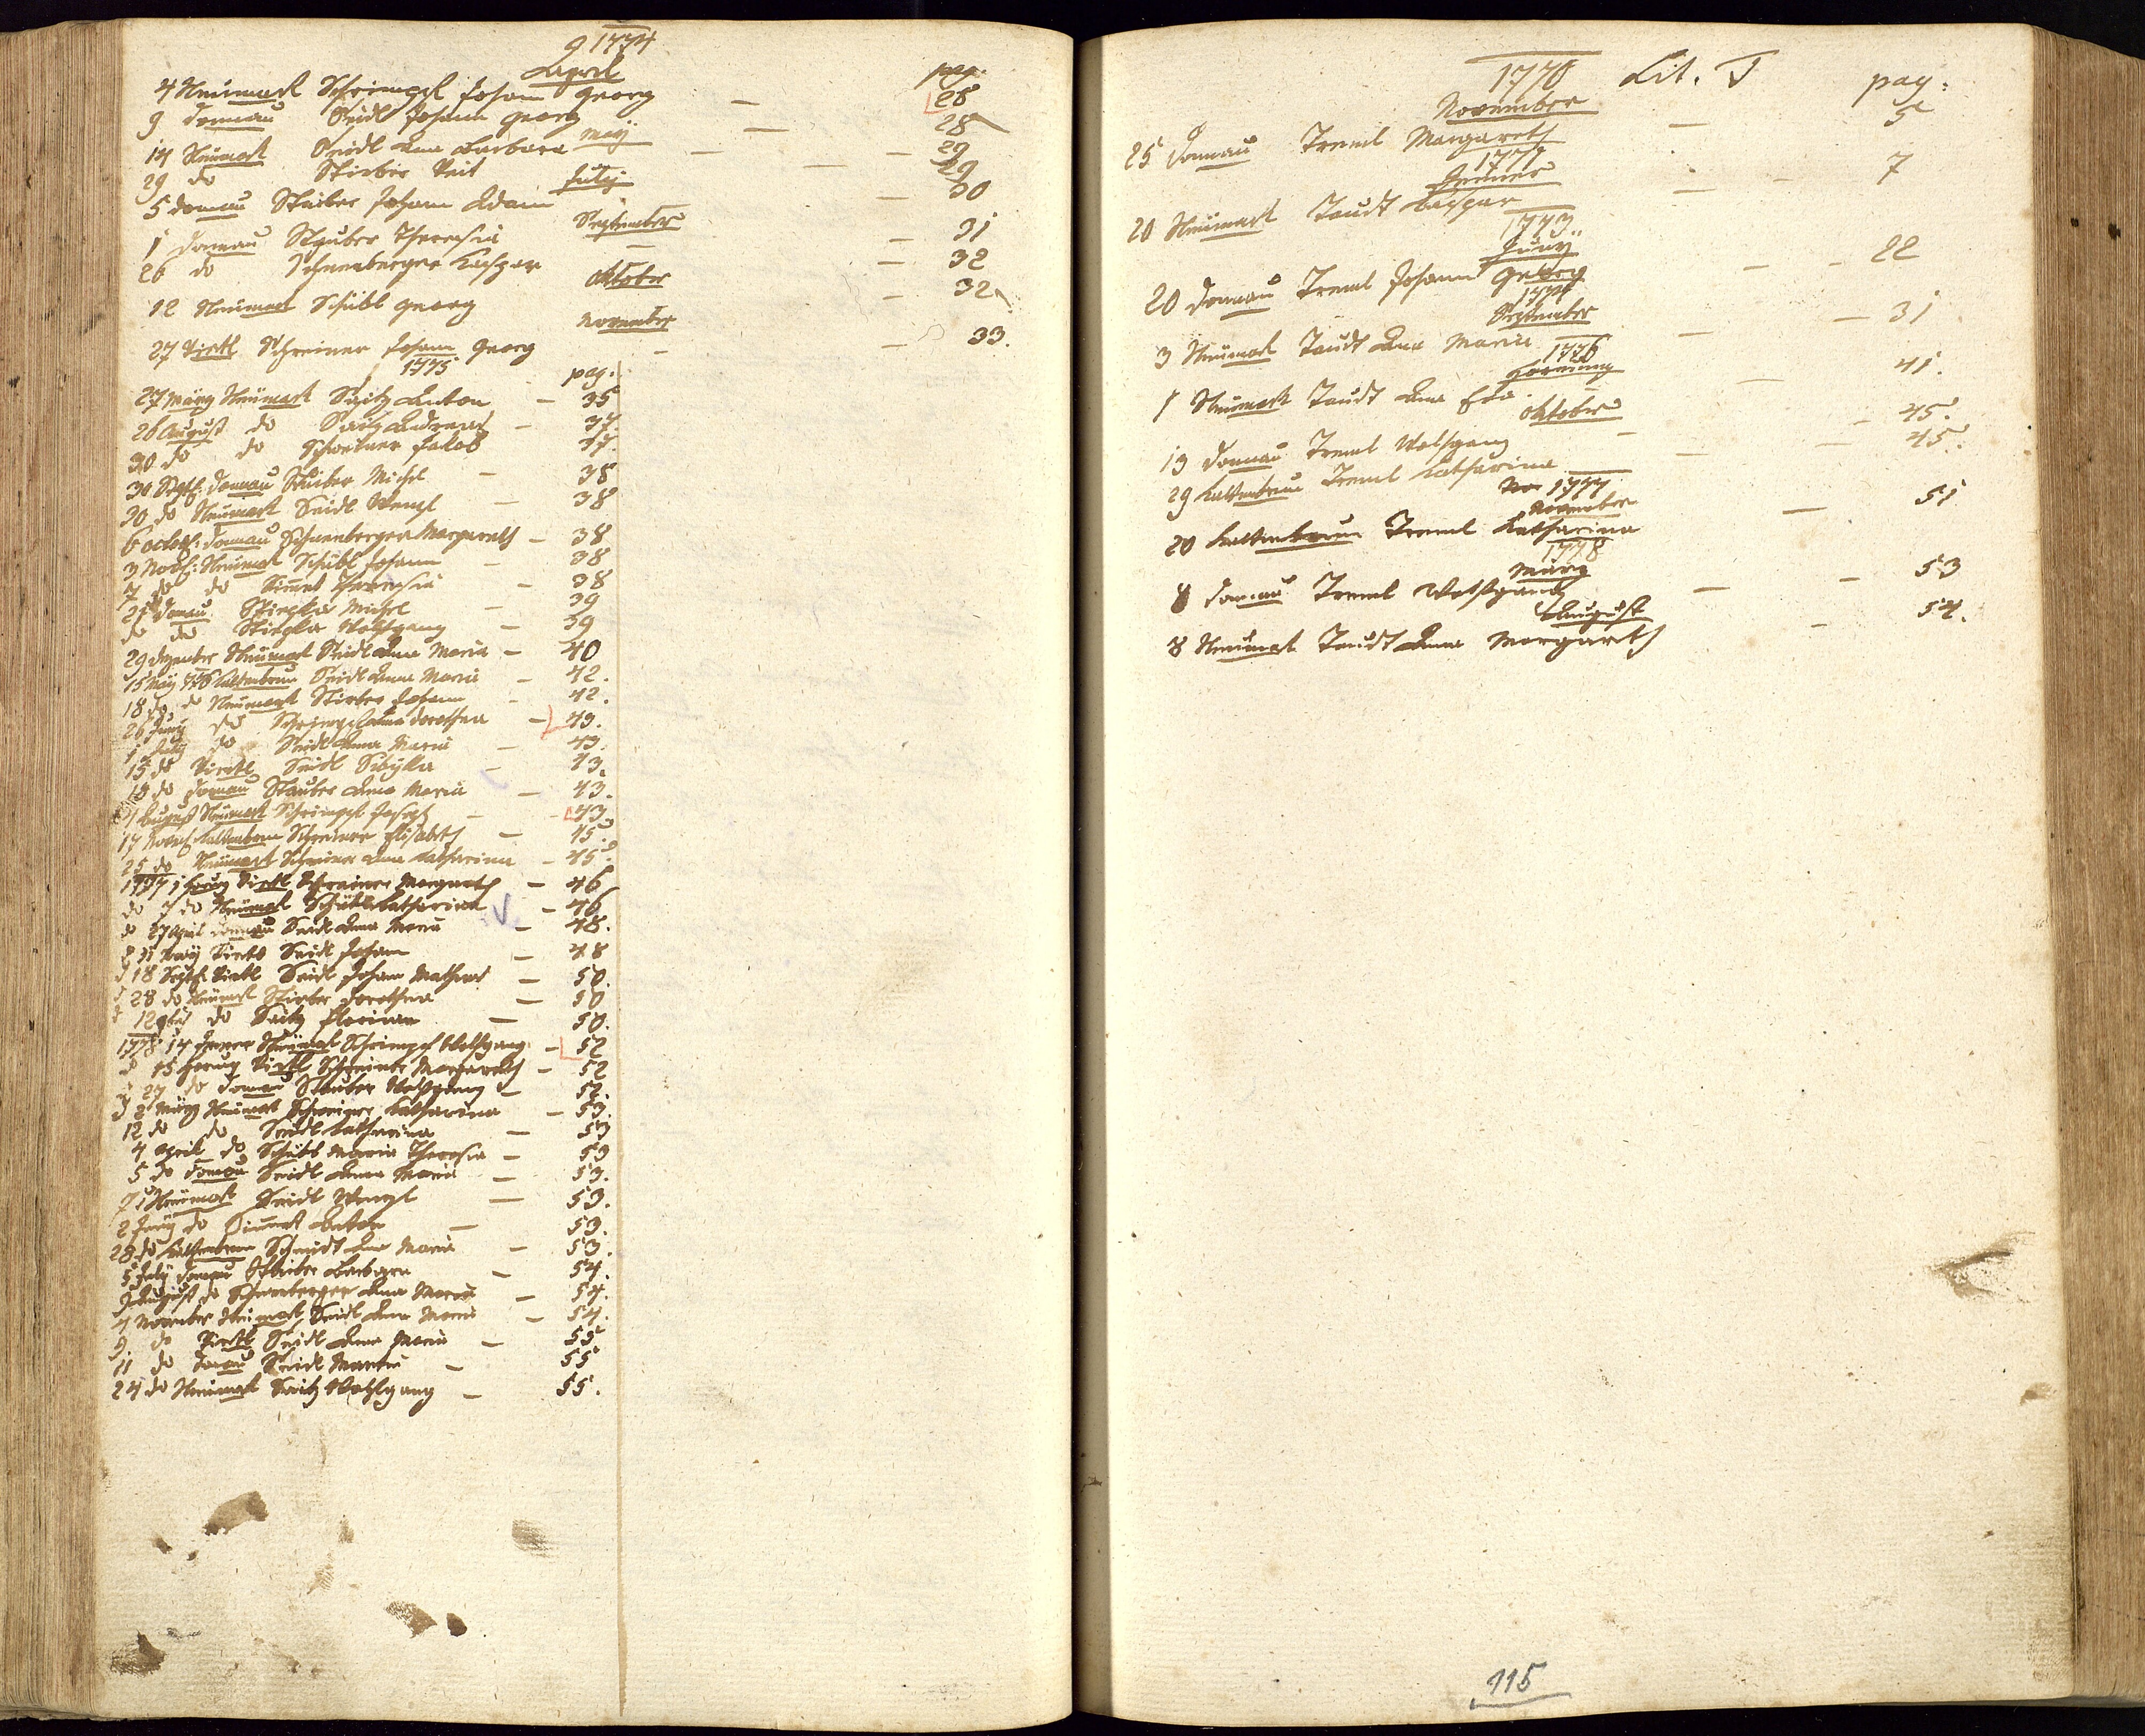 9 1774
April
pag.
4 Neumark Schrimpf Johann Georg — 28
9 Donnau Seidl Johann Georg — 28
May
14 Neumark Seidl Anna Barbara — 29
29 do Stieber Veit — 29
July
5 Donnau Stieber Johann Adam — 30
September
1 Donnau Stauber Theresia — 31
26 do Schneeberger Kaspar — 32
Oktober
12 Neumark Schübl Georg — 32
November
27 Viertl Schreiner Johann Georg — 33.
1775 pag.
27 März Neumark Seitz Anton — 35
26 August do Seitz Andreas — 37.
30 do do Schreiner Jakob 37.
30 Septb: Donnau Stieber Michl — 38
30 do Neumark Seidl Wenzl — 38
6 Octob: Donnau Schneeberger Margareth — 38
3 Novb: Neumark Schübl Johann — 38
7 do do Simmet Theresia — 38
21 Donau Michl — 39
do do Wolfgang — 39
29 Dezember Neumark Seidl Anna Maria — 40
15 May 776 Kaltenbrun Seidl Anna Maria — 42.
18 do do Neumark Stieber Johann — 42.
26 Juny do Schrimpf Anna Dorothea — 43.
1 July do Seidl Anna Maria — 43.
15 do Viertl Seidl Sibylla — 43.
19 do Donnau Stauber Anna Maria — 43.
August Neumark Schrimpf Joseph — 43
17 Novb: Kaltenbrun Schreiner Elisabeth — 45.
25 do Neumark Schreiner Anna Katharina — 45.
1777 1 Horng Viertl Schreiner Margareth — 46
do 7 do Neumark Schübl Katharina — 46
do 27 April Donnau Seidl Anna Maria — 48.
11 May Viertl Seidl Johann — 48
18 Septb. Viertl Seidl Johann Mathias — 50.
28 do Neumark Stieber Dorothea — 50
12 9ber do Seitz Florian — 50.
1778 14 Jenner Neumark Schrimpf Wolfgang — 52
15 Horng Viertl Schreiner Margareth — 52
27 do Donnau Stauber Wolfgang — 52.
2 März Neumark Schreiner Katharina — 53.
12 do do Seidl Katharina — 53
4 April do Schübl Maria Theresia — 53
5 do Donnau Seidl Anna Maria — 53.
7 Neumark Seidl Wenzl — 53.
2 Juny do Simmet Anton — 53.
28 do Kaltenbrun Schmidt Anna Maria — 53.
5 July Donnau Stieber Barbara — 54.
9 August do Schneeberger Anna Maria — 54.
4 November Neumark Seidl Anna Maria — 54.
9. do Viertl Seidl Anna Maria — 55
11 do Donau Seidl Martin — 55
24 do Neumark Seitz Wolfgang — 55.
1770 Lit. T pag:
November
25 Donnau Treml Margareth — 5
1771
Jenner
20 Neumark Taudt Caspar — 7
1773.
Juny
20 Donnau Treml Johann Georg — 22
1774
September
3 Neumark Taudt Anna Maria — 31
1776
Hornung
1 Neumark Taudt Anna Eva — 41.
Oktober
13 Donnau Treml Wolfgang — 45.
29 Kaltenbrun Treml Katharina — 45.
1777
November
20 Kaltenbrun Treml Katharina — 51
1778
März
8 Donnau Treml Wolfgang — 53
August
8 Neumark Taudt Anna Margareth — 54.
115